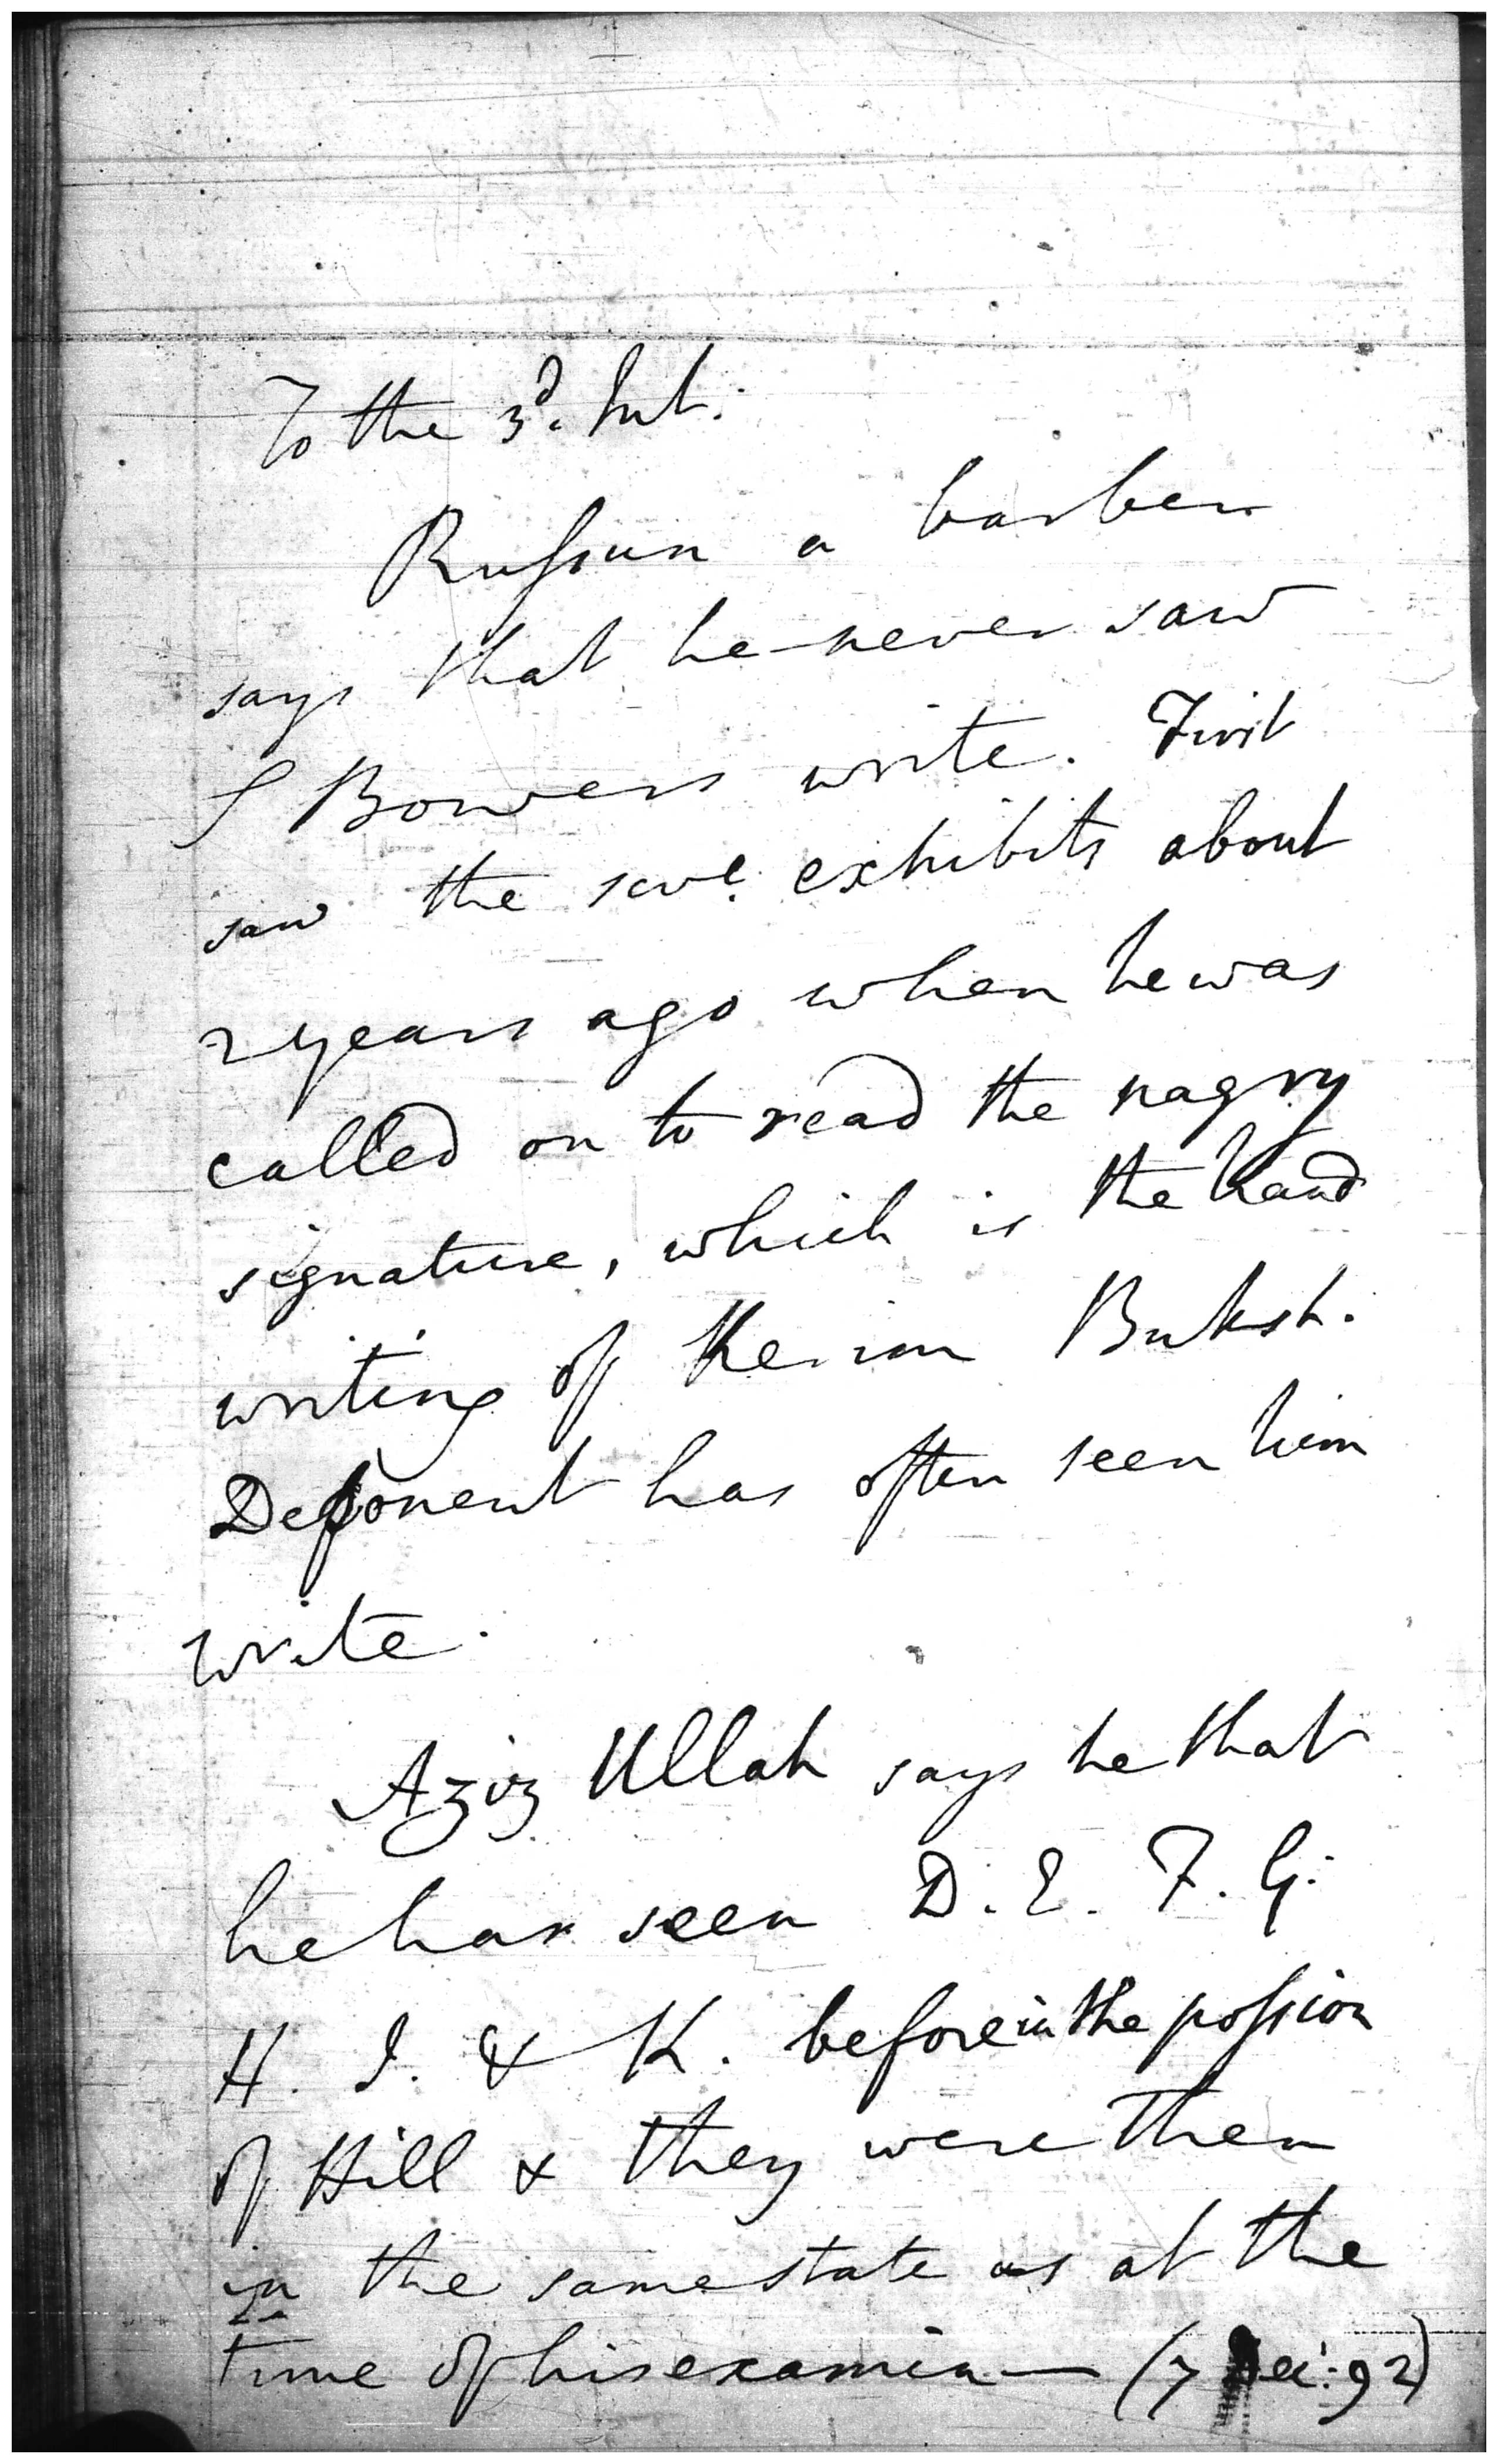 To the 3d. Int.
Russun a barber
says that he never saw
S Bowers write. First
saw the sevl. exhibits about
2 years ago when he was
called on to read the nagry
signature, which is the hand
writing of Kerim Buksh.
Deponent has often seen him
write.
Aziz Ullah says he that
he has seen D. E. F. G.
H. I. & K. before in the possion
of Hill & they were then
in the same state as at the
time of his examin— (7 Dec: 92)